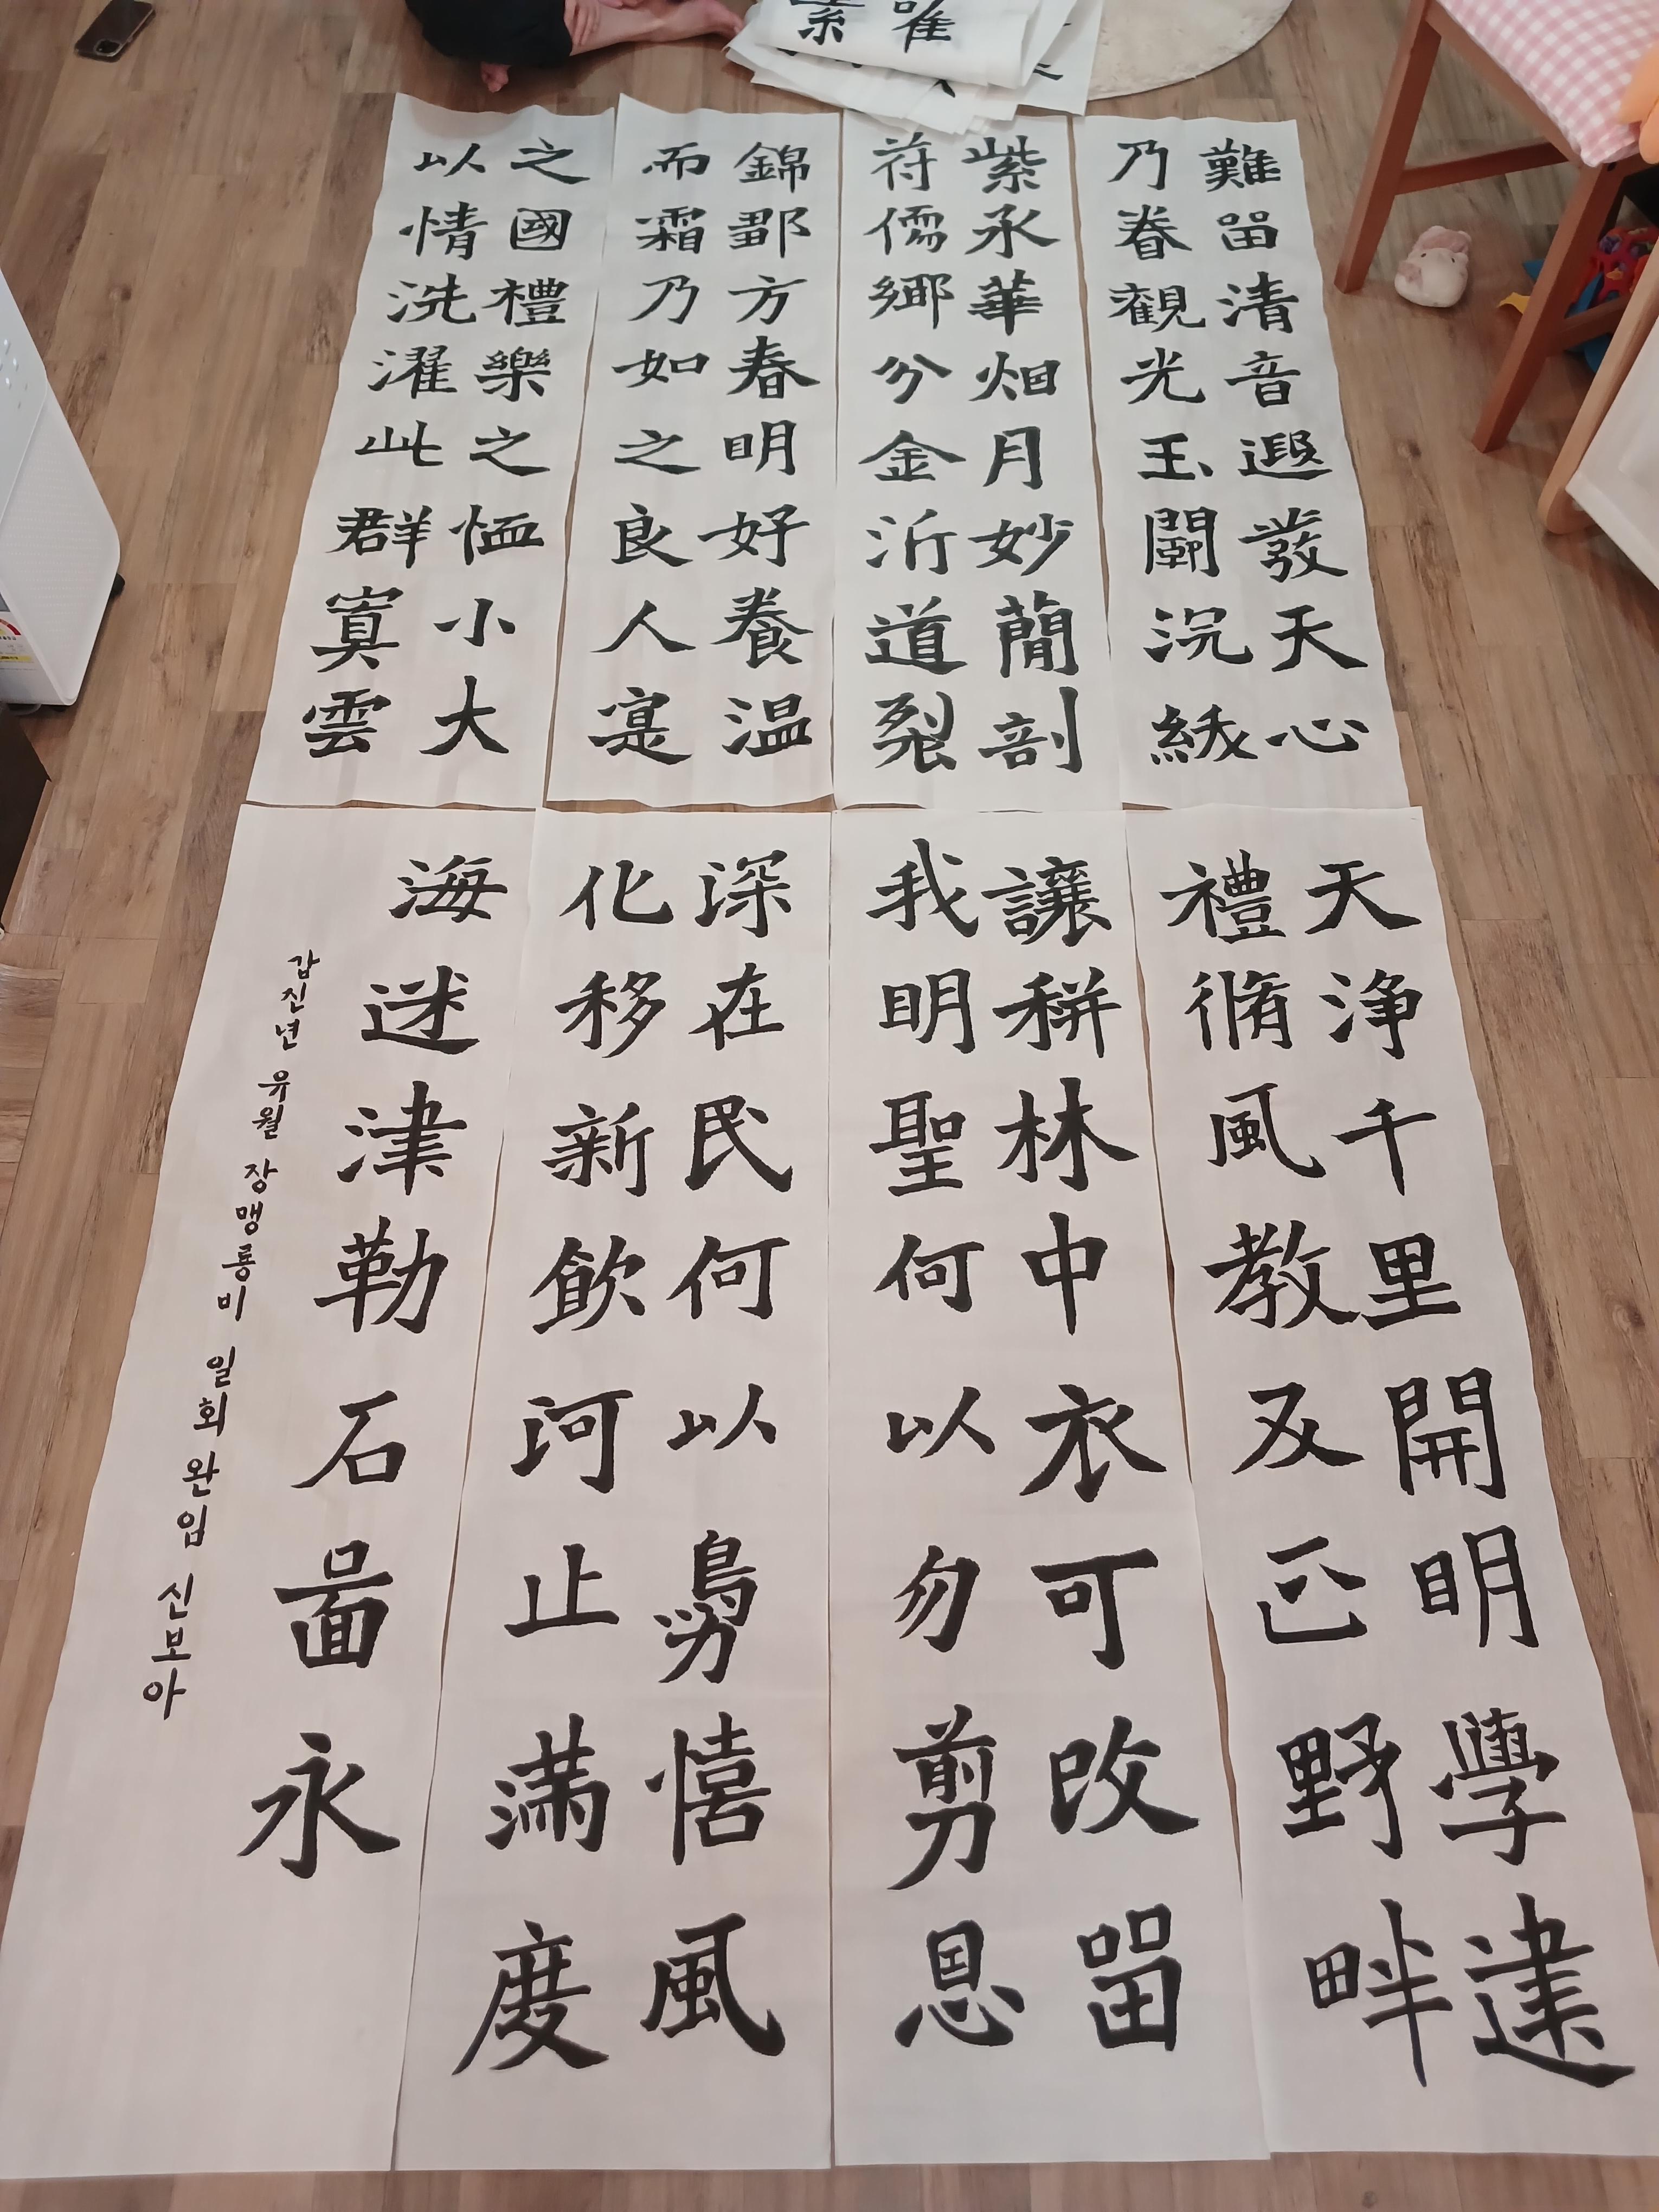 難留清音遐發天心
乃眷觀光玉闈沉紱
紫承華烟月妙簡剖
符儒鄉分金沂道裂
錦鄒方春明好養温
而霜乃如之良人寔
之國禮樂之恤小大
以情洗濯此群寘雲
天淨千里開明學建
禮脩風教反正野畔
讓耕林中衣可改留
我明聖何以勿剪恩
深在民何以鳥易憘風
化移新飲河止滿度
海迷津勒石圖永
갑진년 유월 장맹룡비 일회완임 신보아